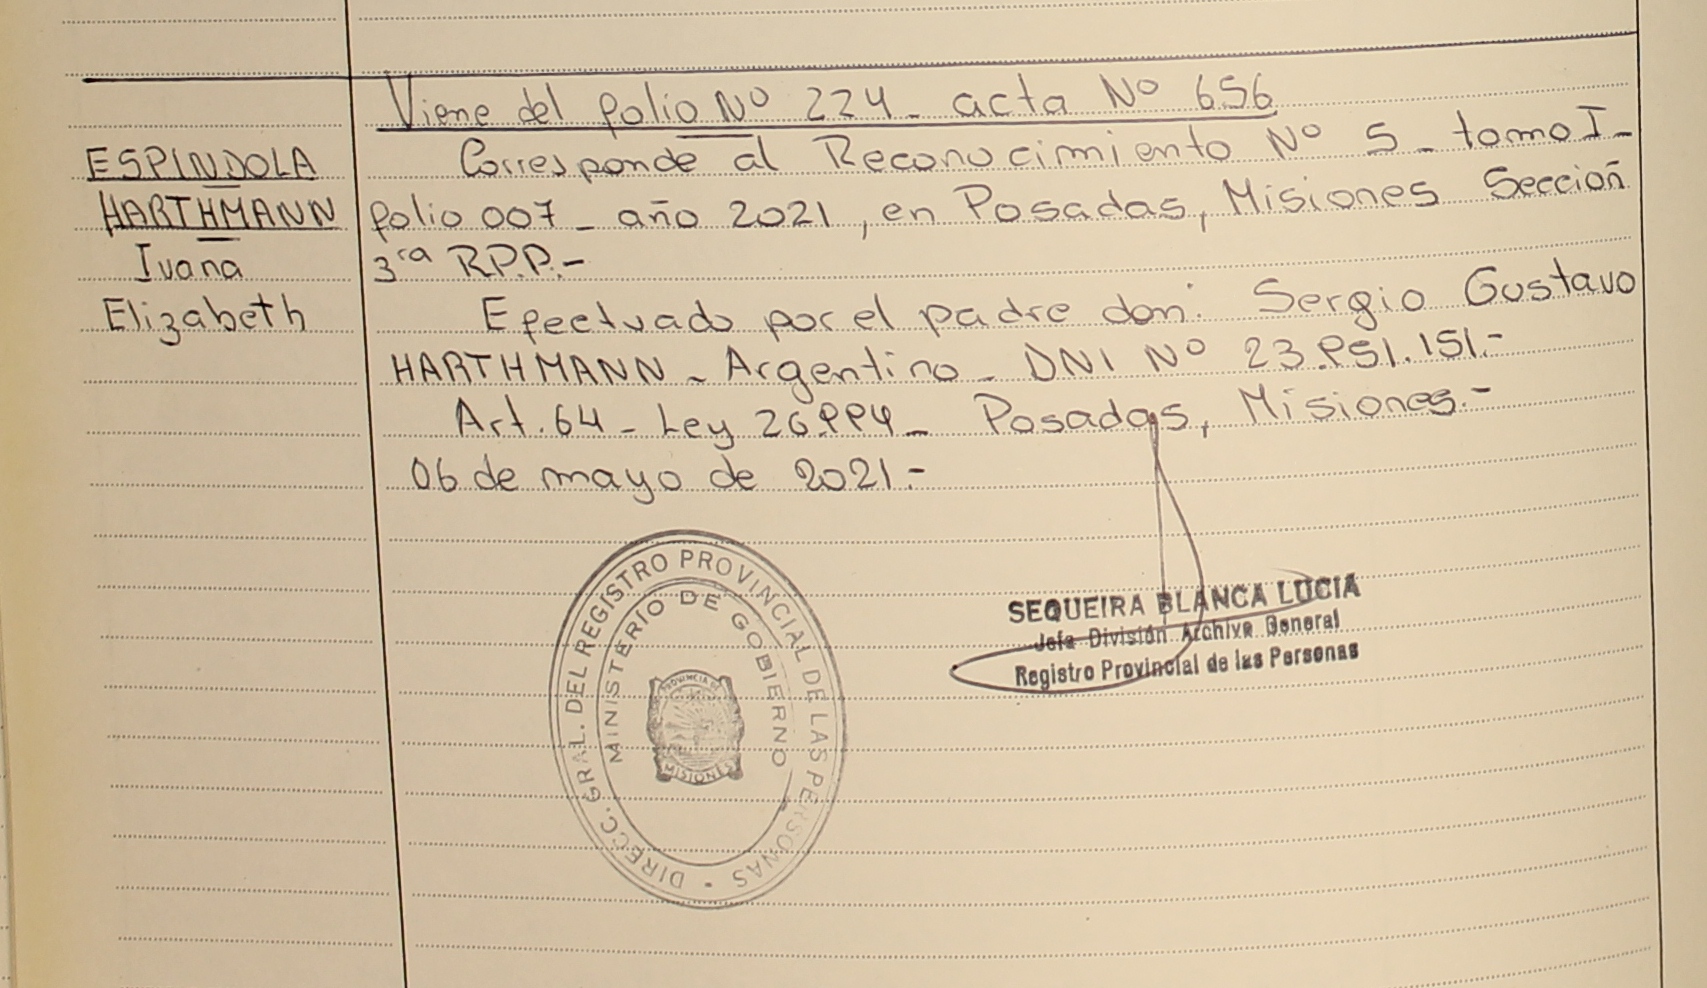 Viene del folio Nº 224_ acta Nº 656
ESPINDOLA
HARTHMANN
Ivana
Elizabeth
Corresponde al Reconocimiento Nº 5_ tomo I_
folio 007_ año 2021, en Posadas, Misiones Sección
3ra R.P.P.-
Efectuado por el padre don: Sergio Gustavo
HARTHMANN_ Argentino_ DNI Nº 23.951.151.-
Art. 64_ Ley 26.994_ Posadas, Misiones.-
06 de mayo de 2021.-
DIRECC. GRAL. DEL REGISTRO PROVINCIAL DE LAS PERSONAS
MINISTERIO DE GOBIERNO
PROVINCIA DE
MISIONES
SEQUEIRA BLANCA LUCIA
Jefa División Archivo General
Registro Provincial de las Personas